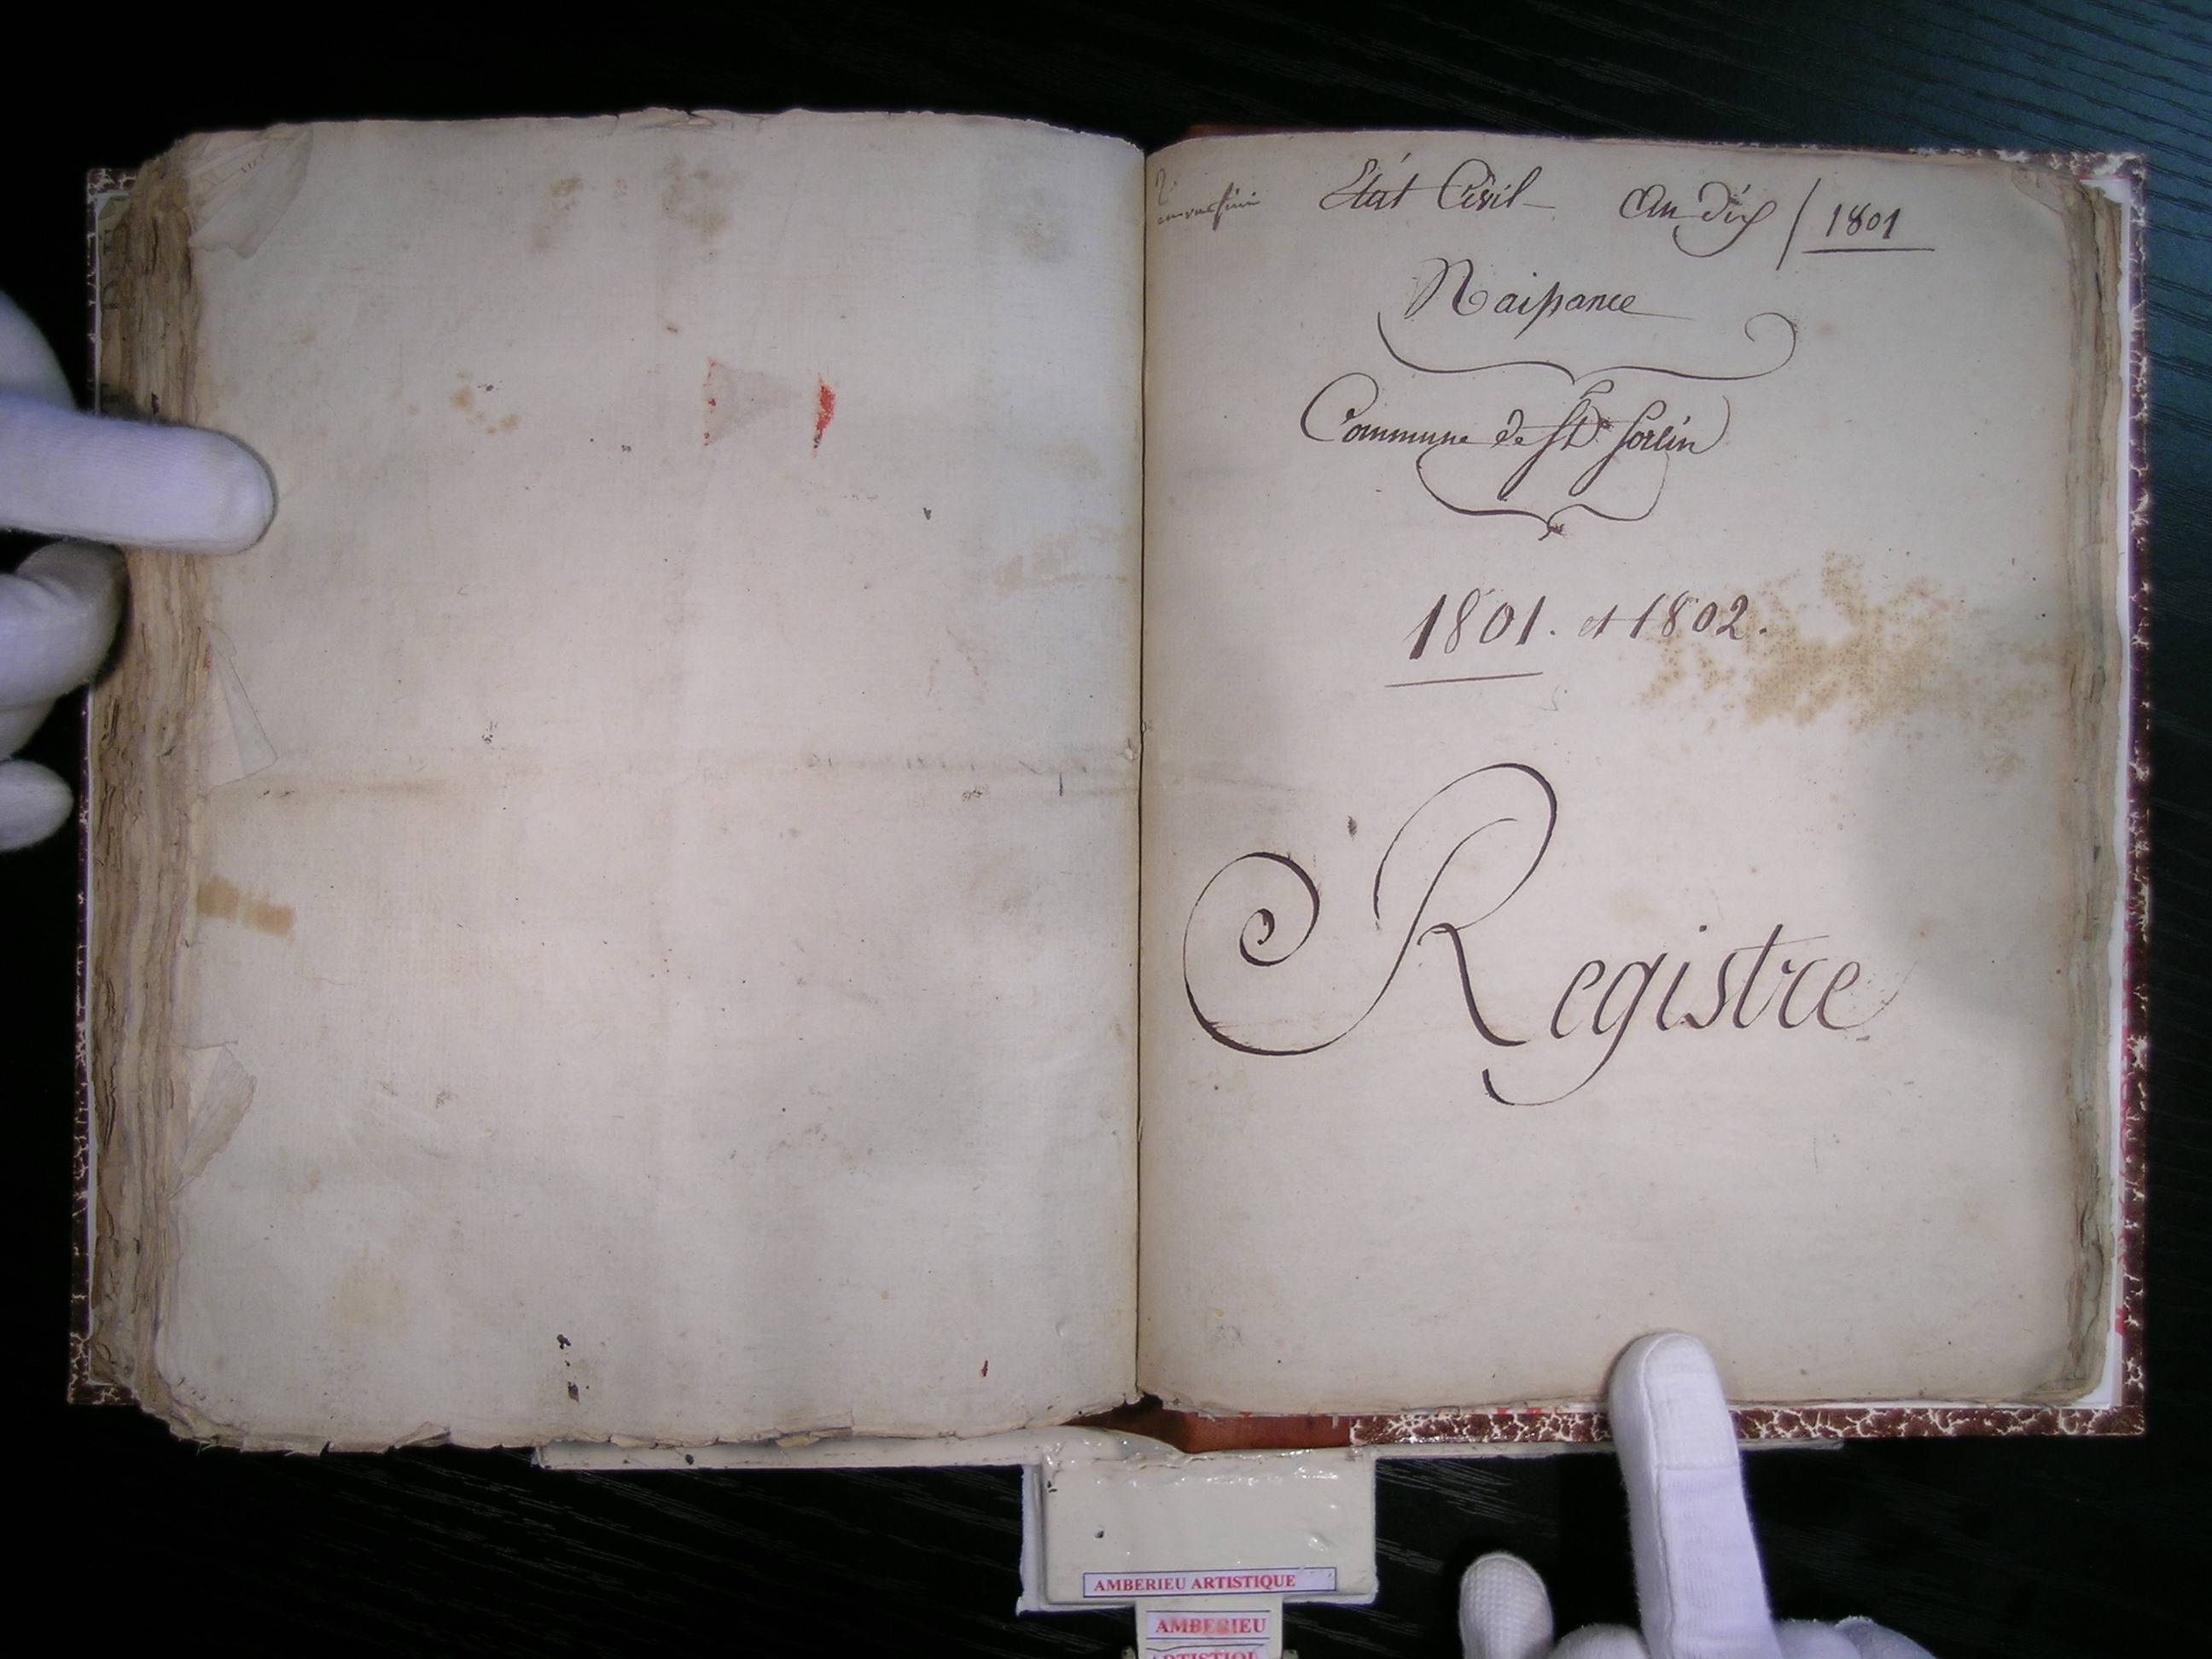 État Civil An dix / 1801
Naissance
Commune de St Sorlin
1801. et 1802.
Registre
AMBERIEU ARTISTIQUE
AMBERIEU
ARTISTIQUE